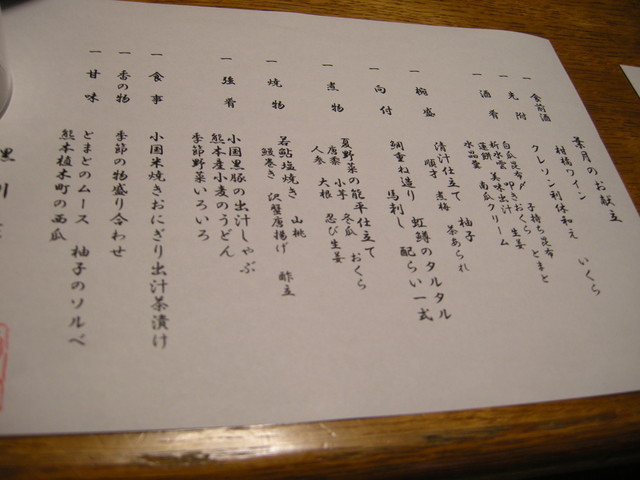 葉月のお献立
一 食前酒 柑橘ワイン
一 先附 クレソン利休和え いくら
一 酒肴 白瓜昆布〆 子持ち昆布 とまと
叩きおくら 生姜
美味出汁
蓮餅 南瓜クリーム
一 椀盛 清汁仕立て 柚子
順才 煮梅 茶あられ
一 向付 鯛重ね造り 虹鱒のタルタル
馬刺し 配らい一式
一 煮物 夏野菜の能平仕立て
唐黍 小芋 冬瓜 おくら
人参 大根 忍び生姜
一 焼物 若鮎塩焼き 山桃
鰻巻き 沢蟹唐揚げ 酢立
一 強肴 小国黒豚の出汁しゃぶ
熊本産小麦のうどん
季節野菜いろいろ
一 食事 小国米焼きおにぎり出汁茶漬け
一 香の物 季節の物盛り合わせ
一 甘味 とまとのムース 柚子のソルベ
熊本植木町の西瓜
黒川